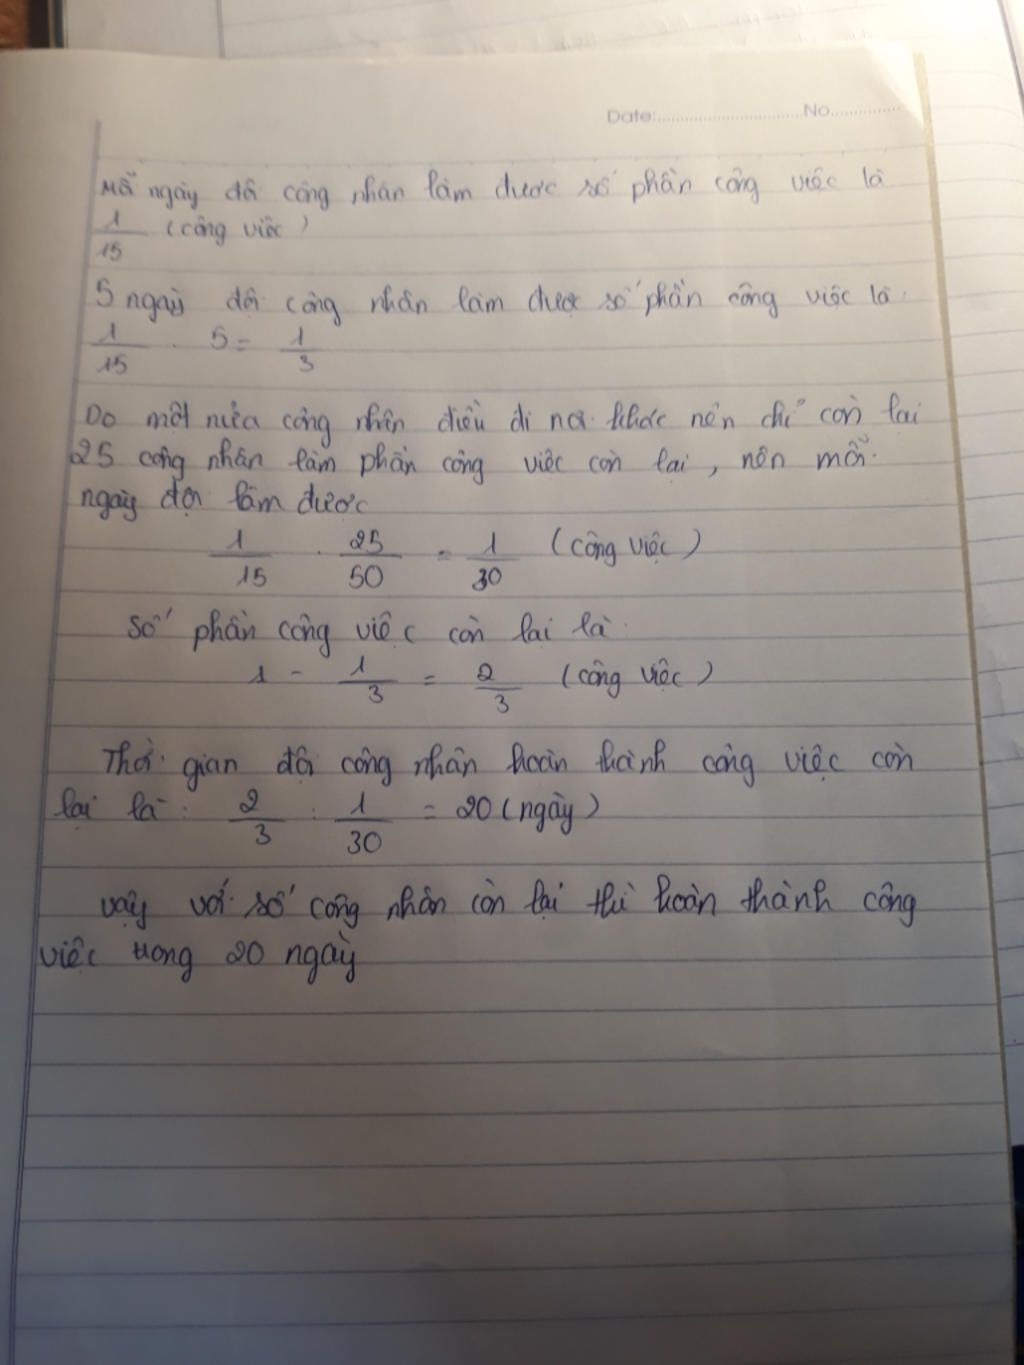 Date:..............................No...............
Mỗi ngày đội công nhân làm được số phần công việc là
1/15 (công việc)
5 ngày đội công nhân làm được số phần công việc là.
1/15 . 5 = 1/3
Do một nửa công nhân điều đi nơi khác nên chỉ còn lại
25 công nhân làm phần công việc còn lại, nên mỗi
ngày đội làm được
1/15 . 25/50 = 1/30 (công việc)
Số phần công việc còn lại là.
1 - 1/3 = 2/3 (công việc)
Thời gian đội công nhân hoàn thành công việc còn
lại là: 2/3 : 1/30 = 20 (ngày)
Vậy với số công nhân còn lại thì hoàn thành công
việc trong 20 ngày